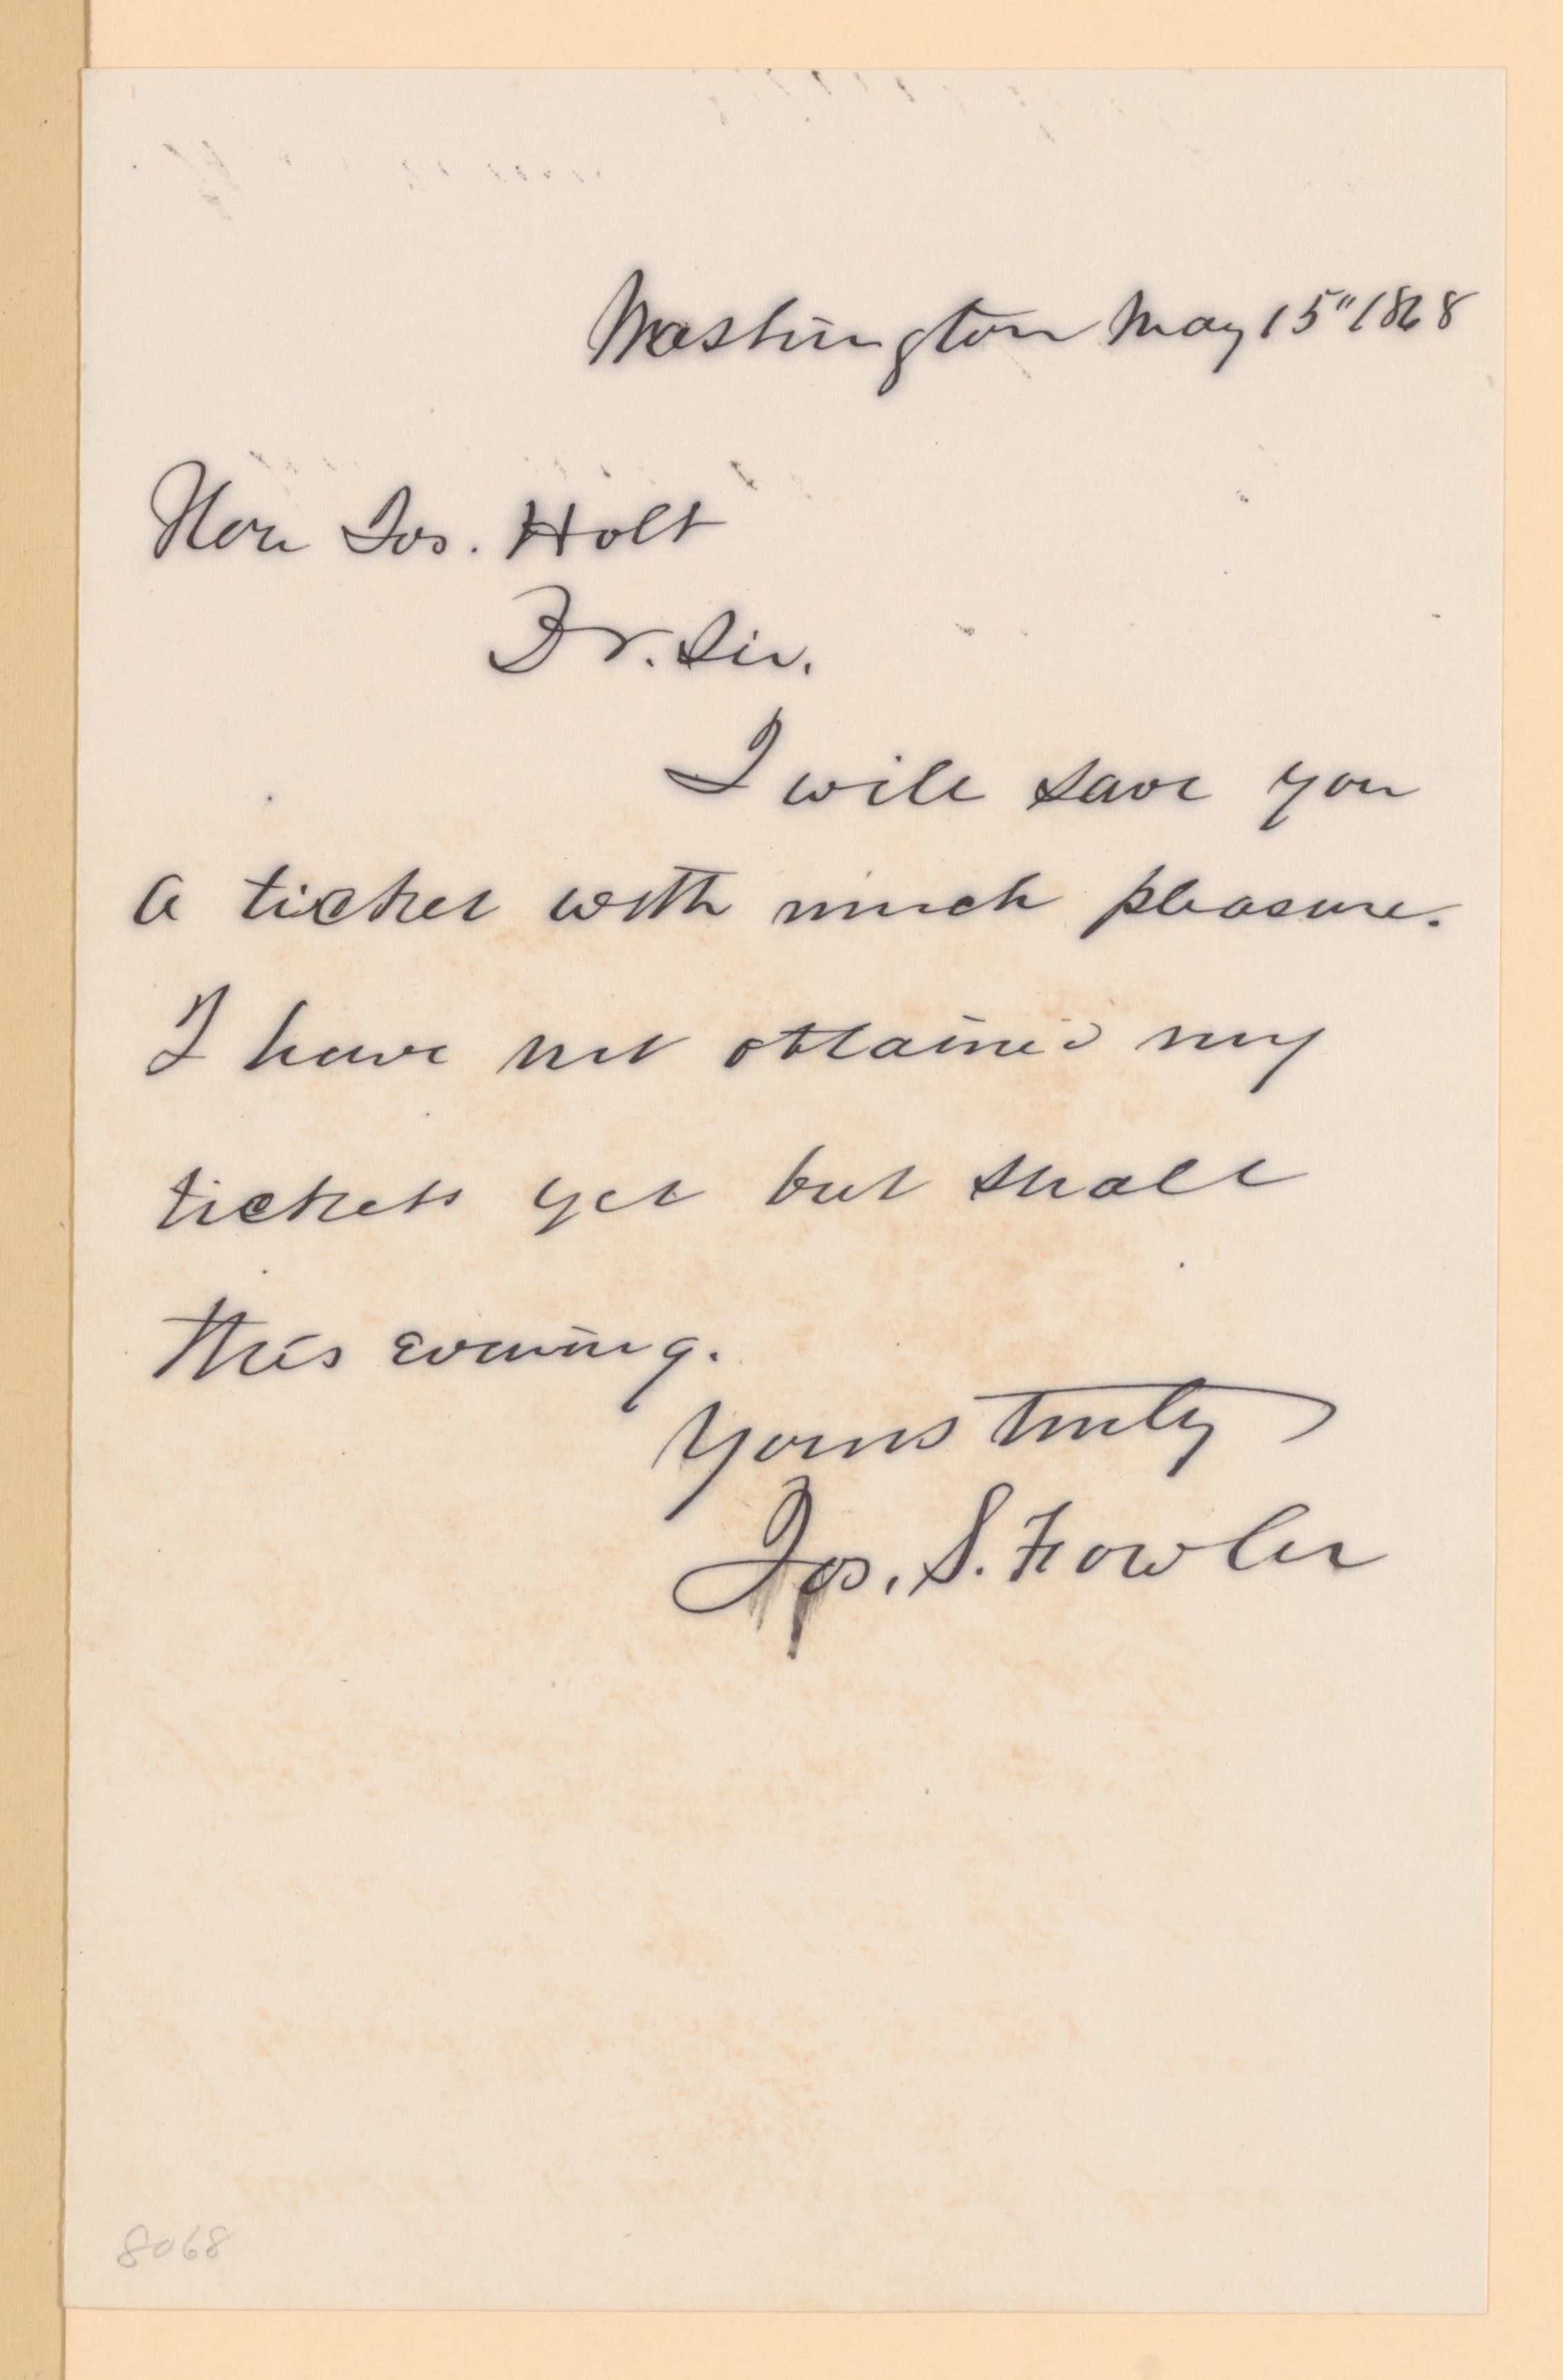 Washington May 15" 1868
Hon Jos. Holt
Dr. Sir.
I will save you
a ticket with much pleasure.
I have not obtained my
tickets yet but shall
this evening.
Yours truly
Jos. S. Fowler
8068